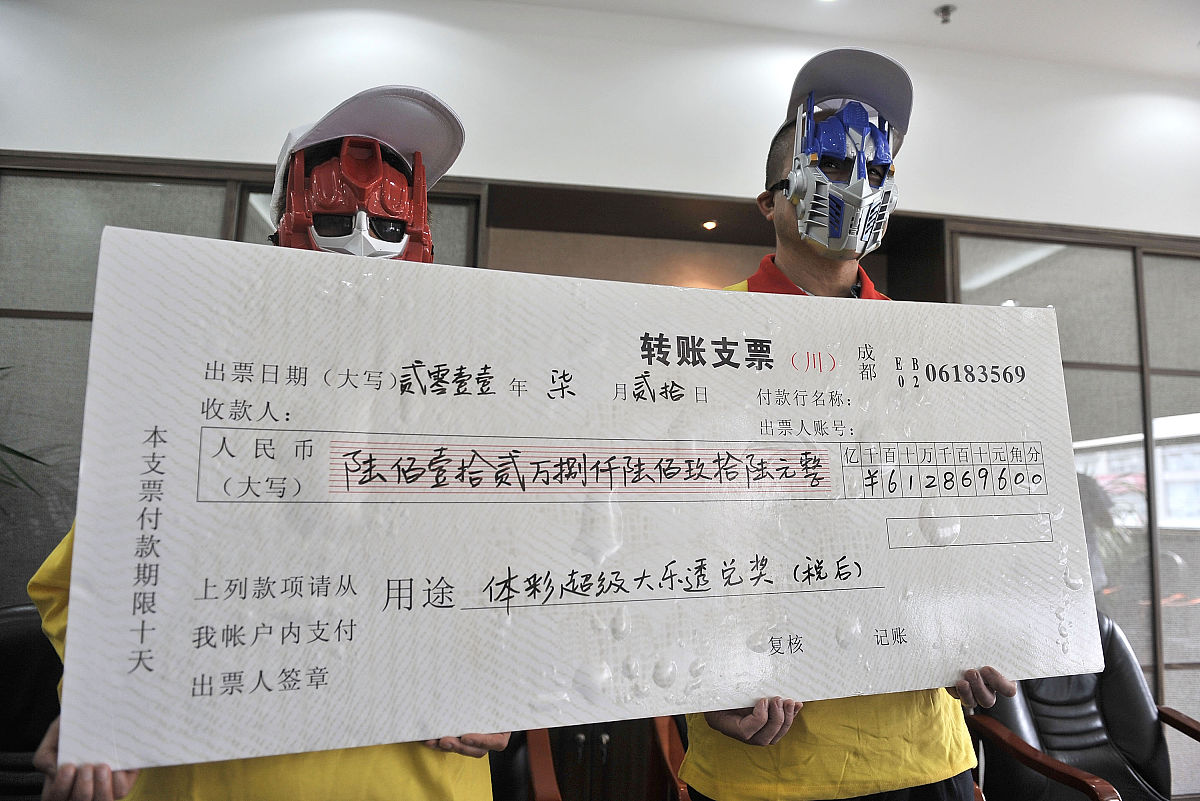 转账支票（川） 成都 EB02 06183569
出票日期（大写）贰零壹壹 年 柒 月贰拾日 付款行名称：
收款人： 出票人账号：
人民币（大写） 陆佰壹拾贰万捌仟陆佰玖拾陆元整 亿千百十万千百十元角分
¥612869600
本支票付款期限十天
上列款项请从 用途 体彩超级大乐透兑奖（税后）
我帐户内支付
出票人签章 复核 记账